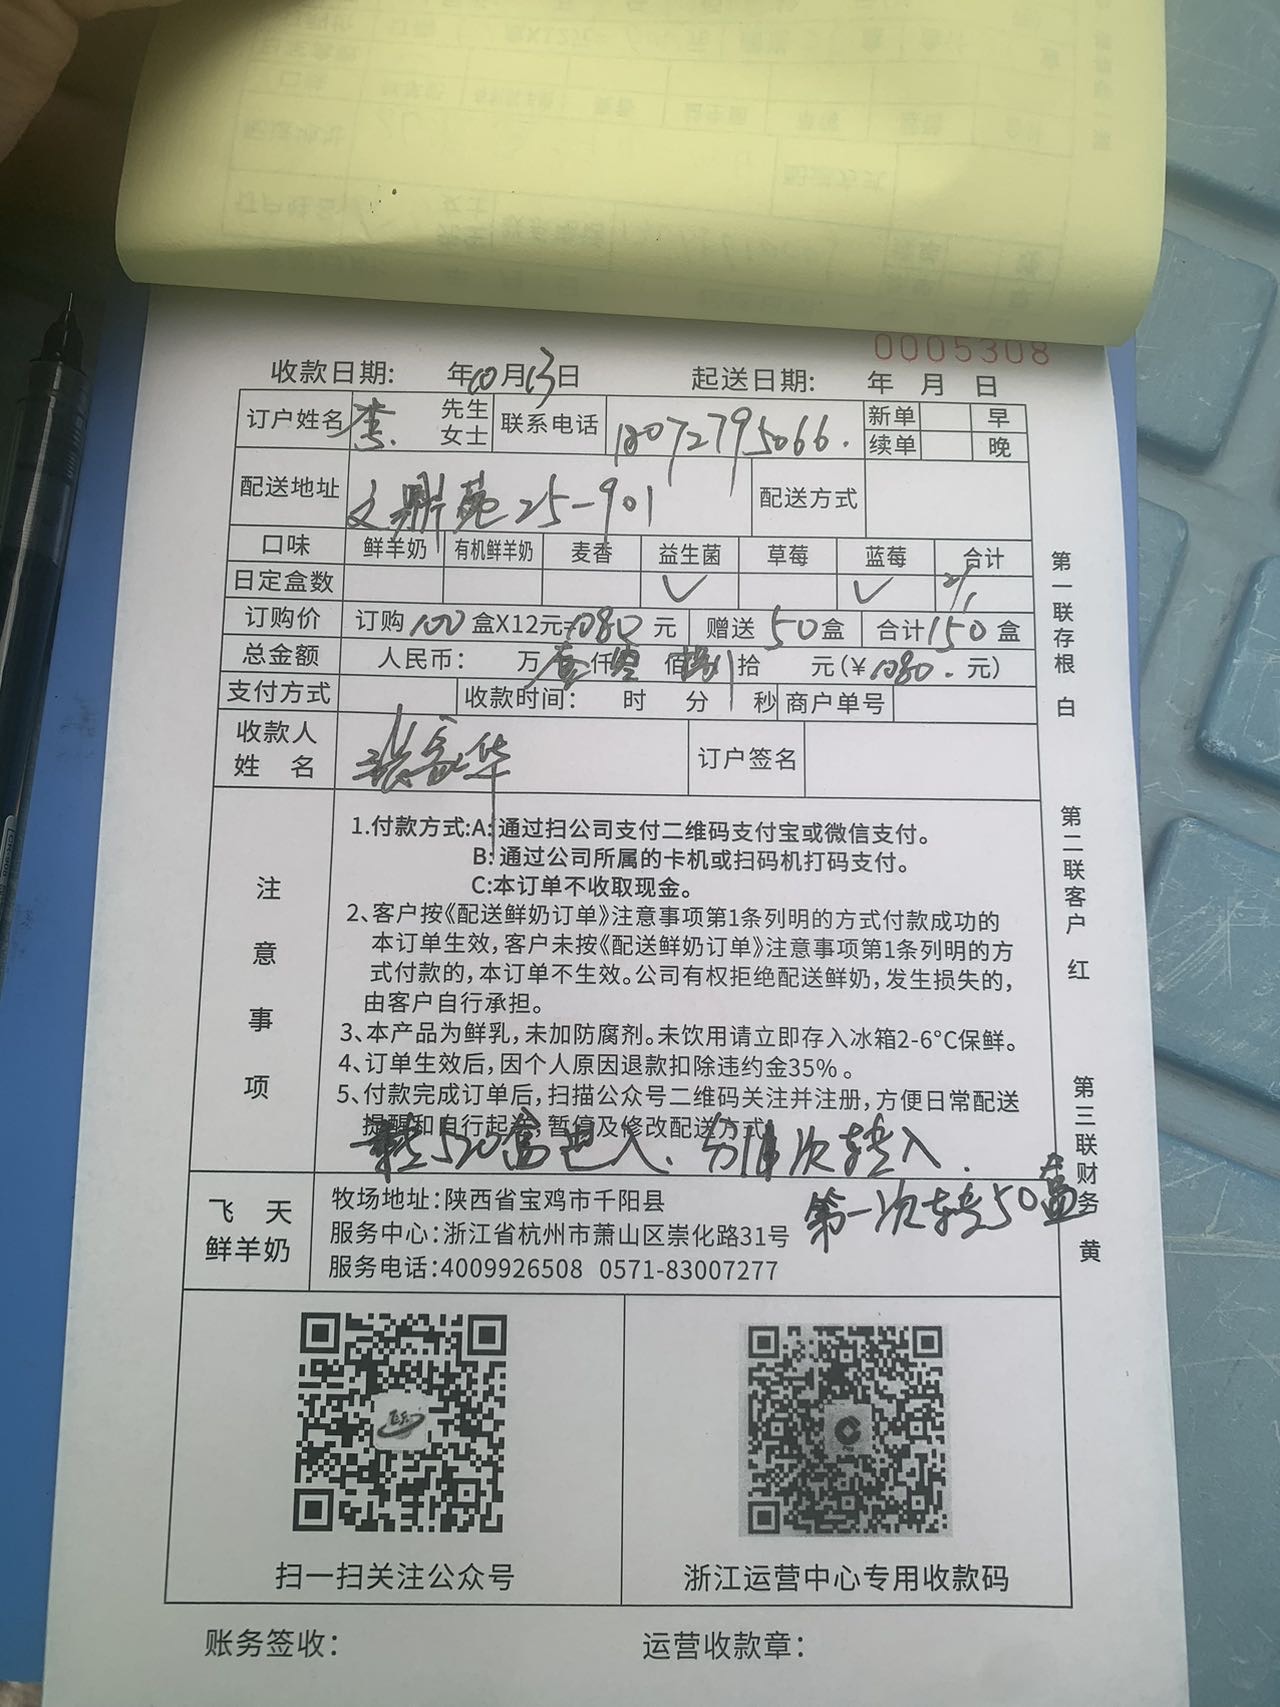 0005308
收款日期: 年10月13日 起送日期: 年 月 日
订户姓名 李 先生 女士 联系电话 18072795066. 新单 早
续单 晚
配送地址 文鼎苑25-901 配送方式
口味 鲜羊奶 有机鲜羊奶 麦香 益生菌 草莓 蓝莓 合计
日定盒数 ✓ ✓
订购价 订购100盒X12元=1080元 赠送50盒 合计150盒
总金额 人民币: 万壹仟零佰捌拾 元(¥1080.元)
支付方式 收款时间: 时 分 秒 商户单号
收款人姓名 订户签名
注意事项
1.付款方式:A:通过扫公司支付二维码支付宝或微信支付。
B:通过公司所属的卡机或扫码机打码支付。
C:本订单不收取现金。
2、客户按《配送鲜奶订单》注意事项第1条列明的方式付款成功的
本订单生效,客户未按《配送鲜奶订单》注意事项第1条列明的方
式付款的,本订单不生效。公司有权拒绝配送鲜奶,发生损失的,
由客户自行承担。
3、本产品为鲜乳,未加防腐剂。未饮用请立即存入冰箱2-6°C保鲜。
4、订单生效后,因个人原因退款扣除违约金35%。
5、付款完成订单后,扫描公众号二维码关注并注册,方便日常配送
提醒和自行起送,暂停及修改配送方式
次转入.
第一次转50盒
飞天鲜羊奶
牧场地址:陕西省宝鸡市千阳县
服务中心:浙江省杭州市萧山区崇化路31号
服务电话:4009926508 0571-83007277
扫一扫关注公众号 浙江运营中心专用收款码
账务签收: 运营收款章:
第一联存根 白
第二联客户 红
第三联财务 黄